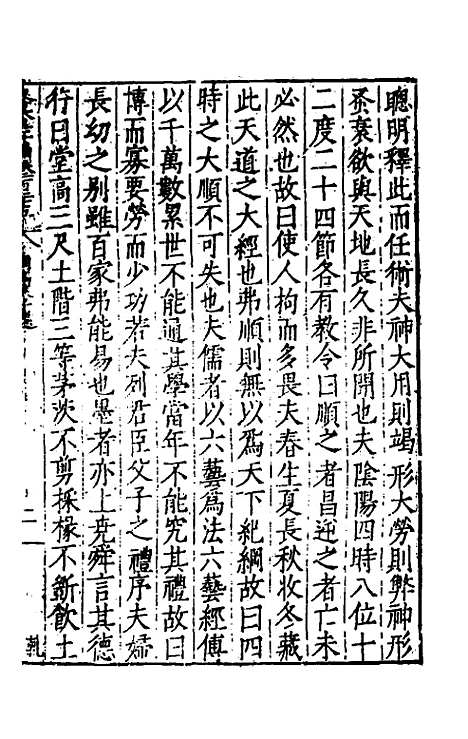 聰明釋此而任術夫神大用則竭形大勞則弊神形
蚤衰欲與天地長久非所聞也夫陰陽四時八位十
二度二十四節各有教令曰順之者昌逆之者亡未
必然也故曰使人拘而多畏夫春生夏長秋收冬藏
此天道之大經也弗順則無以爲天下紀綱故曰四
時之大順不可失也夫儒者以六藝爲法六藝經傳
以千萬數累世不能通其學當年不能究其禮故曰
博而寡要勞而少功若夫列君臣父子之禮序夫婦
長幼之別雖百家弗能易也墨者亦上堯舜言其德
行曰堂高三尺土階三等茅茨不剪採椽不斷飲土